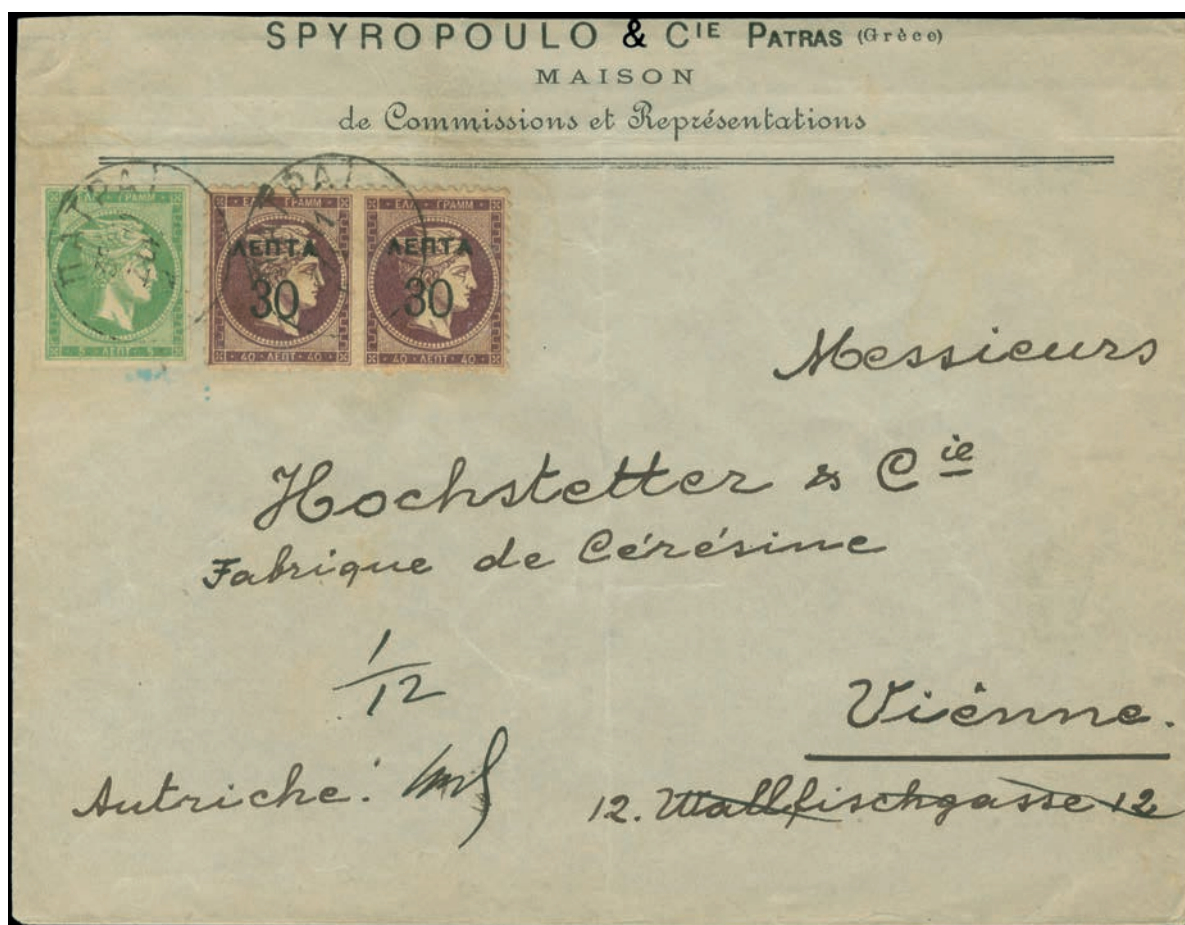 SPYROPOULO & CIE PATRAS (Grèce)
MAISON
de Commissions et Représentations
ΠΑΤΡΑΙ
ΠΑΤΡΑΙ
ΕΛΛ ΓΡΑΜΜ
ΕΛΛ ΓΡΑΜΜ
ΕΛΛ ΓΡΑΜΜ
ΛΕΠΤΑ
30
ΛΕΠΤΑ
30
5 ΛΕΠΤ 5
40 ΛΕΠΤ 40
40 ΛΕΠΤ 40
Messieurs
Hochstetter & Cie
Fabrique de Cérésine
1/12
Viènne.
Autriche:
12. Wallfischgasse 12